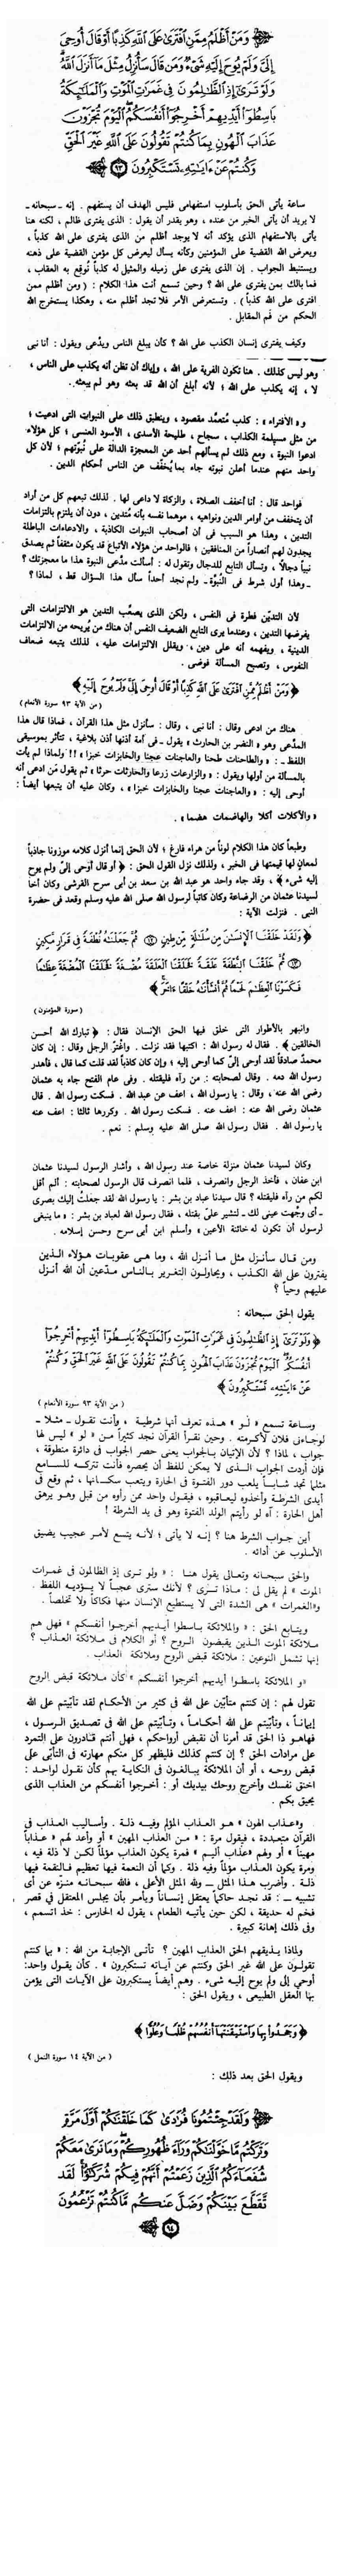 وَمَنْ أَظْلَمُ مِمَّنِ افْتَرَىٰ عَلَى اللَّهِ كَذِبًا أَوْ قَالَ أُوحِيَ
إِلَيَّ وَلَمْ يُوحَ إِلَيْهِ شَيْءٌ وَمَن قَالَ سَأُنزِلُ مِثْلَ مَا أَنزَلَ اللَّهُ
وَلَوْ تَرَىٰ إِذِ الظَّالِمُونَ فِي غَمَرَاتِ الْمَوْتِ وَالْمَلَائِكَةُ
بَاسِطُوا أَيْدِيهِمْ أَخْرِجُوا أَنفُسَكُمُ الْيَوْمَ تُجْزَوْنَ
عَذَابَ الْهُونِ بِمَا كُنتُمْ تَقُولُونَ عَلَى اللَّهِ غَيْرَ الْحَقِّ
وَكُنتُمْ عَنْ آيَاتِهِ تَسْتَكْبِرُونَ ٩٣
ساعة يأتى الحق بأسلوب استفهامى فليس الهدف أن يستفهم . إنه ـ سبحانه ـ
لا يريد أن يأتى الخبر من عنده ، وهو يقدر أن يقول : الذى يفترى ظالم ، لكنه هنا
يأتى بالاستفهام الذى يؤكد أنه لا يوجد أظلم من الذى يفترى على الله كذباً ،
ويعرض الله القضية على المؤمنين وكأنه يسأل ليعرض كل مؤمن القضية على ذهنه
ويستنبط الجواب . إن الذى يفترى على زميله والمثيل له كذباً نُوقع به العقاب ،
فما بالك بمن يفترى على الله ؟ وحين تسمع أنت هذا الكلام : ( ومن أظلم ممن
افترى على الله كذباً ) . وتستعرض الأمر فلا تجد أظلم منه ، وهكذا يستخرج الله
الحكم من فم المقابل .
وكيف يفترى إنسان الكذب على الله ؟ كأن يبلغ الناس ويدّعى ويقول : أنا نبى
وهو ليس كذلك . هنا تكون الفرية على الله ، وإياك أن تظن أنه يكذب على الناس ،
لا ، إنه يكذب على الله ؛ لأنه أبلغ أن الله قد بعثه وهو لم يبعثه .
و « الافتراء » : كذب متعمَّد مقصود ، وينطبق ذلك على النبوات التى ادعيت ؛
من مثل مسيلمة الكذاب ، سجاح ، طليحة الأسدى ، الأسود العنسى ؛ كل هؤلاء
ادعوا النبوة ، ومع ذلك لم يسألهم أحد عن المعجزة الدالة على نُبوّتهم ؛ لأن كل
واحد منهم عندما أعلن نبوته جاء بما يُخفِّف عن الناس أحكام الدين .
فواحد قال : أنا أخفف الصلاة ، والزكاة لا داعى لها . لذلك تبعهم كل من أراد
أن يتخفف من أوامر الدين ونواهيه ، موهماً نفسه بأنه مُتدين ، دون أن يلتزم بالتزامات
التدين ، وهذا هو السبب فى أن أصحاب النبوات الكاذبة ، والادعاءات الباطلة
يجدون لهم أنصاراً من المنافقين ؛ فالواحد من هؤلاء الأتباع قد يكون مثقفاً ثم يصدق
نبياً دجالاً ، وتسأل التابع للدجال وتقول له : أسألت مدّعى النبوة هذا ما معجزتك ؟
ـ وهذا أول شرط فى النُبوّة ـ ولم نجد أحداً سأل هذا السؤال قط ، لماذا ؟
لأن التديّن فطرة فى النفس ، ولكن الذى يصعِّب التدين هو الالتزامات التى
يفرضها التدين ، وعندما يرى التابع الضعيف النفس أن هناك من يُريحه من الالتزامات
الدينية ، ويفهمه أنه على دين ، ويقلل الالتزامات عليه ، لذلك يتبعه ضعاف
النفوس ، وتصبح المسألة فوضى .
﴿ وَمَنْ أَظْلَمُ مِمَّنِ افْتَرَىٰ عَلَى اللَّهِ كَذِبًا أَوْ قَالَ أُوحِيَ إِلَيَّ وَلَمْ يُوحَ إِلَيْهِ ﴾
( من الآية ٩٣ سورة الأنعام )
هناك من ادعى وقال : أنا نبى ، وقال : سأنزل مثل هذا القرآن ، فماذا قال هذا
المدّعى وهو « النضر بن الحارث » يقول ـ فى أمة أذنها أذن بلاغية ، تتأثر بموسيقى
اللفظ ـ : « والطاحنات طحنا والعاجنات عجنا والخابزات خبزا » !! ولماذا لم يأت
بالمسألة من أولها ويقول : « والزارعات زرعا والحارثات حرثا » ثم يقول من ادعى أنه
أوحى إليه : « والعاجنات عجنا والخابزات خبزا » ، وكان عليه أن يتبعها أيضاً :
« والآكلات أكلا والهاضمات هضما » .
وطبعاً كان هذا الكلام لوناً من هراء فارغ ؛ لأن الحق إنما أنزل كلامه موزونا جاذباً
لمعانٍ لها قيمتها فى الخبر ، ولذلك نزل القول الحق : ﴿ أو قال أوحى إلى ولم يوح
إليه شىء ﴾ ، وقد جاء واحد هو عبد الله بن سعد بن أبى سرح القرشى وكان أخا
لسيدنا عثمان من الرضاعة وكان كاتباً لرسول الله صلى الله عليه وسلم وقعد فى حضرة
النبى . فنزلت الآية :
﴿ وَلَقَدْ خَلَقْنَا الْإِنسَانَ مِن سُلَالَةٍ مِّن طِينٍ ١٢ ثُمَّ جَعَلْنَاهُ نُطْفَةً فِي قَرَارٍ مَّكِينٍ
١٣ ثُمَّ خَلَقْنَا النُّطْفَةَ عَلَقَةً فَخَلَقْنَا الْعَلَقَةَ مُضْغَةً فَخَلَقْنَا الْمُضْغَةَ عِظَامًا
فَكَسَوْنَا الْعِظَامَ لَحْمًا ثُمَّ أَنشَأْنَاهُ خَلْقًا آخَرَ ﴾
( سورة المؤمنون )
وانبهر بالأطوار التى خلق فيها الحق الإنسان فقال : ﴿ تبارك الله أحسن
الخالقين ﴾ . فقال له رسول الله : اكتبها فقد نزلت . واغْترّ الرجل وقال : إن كان
محمدٌ صادقاً لقد أوحى إلىّ كما أوحى إليه ؛ وإن كان كاذباً لقد قلت كما قال ، فأهدر
رسول الله دمه . وقال لصحابته : من رآه فليقتله . وفى عام الفتح جاء به عثمان
رضى الله عنه ، وقال : يا رسول الله ، اعف عن عبد الله . فسكت رسول الله . قال
عثمان رضى الله عنه : اعف عنه . فسكت رسول الله . وكررها ثالثا : اعف عنه
يا رسول الله . فقال رسول الله صلى الله عليه وسلم : نعم .
وكان لسيدنا عثمان منزلة خاصة عند رسول الله ، وأشار الرسول لسيدنا عثمان
ابن عفان ، فأخذ الرجل وانصرف ، فلما انصرف قال الرسول لصحابته : ألم أقل
لكم من رآه فليقتله ؟ قال سيدنا عباد بن بشر : يا رسول الله لقد جعلتُ إليك بصرى
ـ أى وجهت عينى لك ـ لتشير علىّ بقتله ، فقال رسول الله لعباد بن بشر : « ما ينبغى
لرسول أن تكون له خائنة الأعين » وأسلم ابن أبى سرح وحسن إسلامه .
ومن قـال سأنـزل مثـل ما أنـزل الله ، وما هـى عقوبـات هـؤلاء الـذين
يفترون على الله الكـذب ، ويحاولـون التغريـر بالنـاس مـدّعين أن الله أنـزل
عليهم وحياً ؟
يقول الحق سبحانه :
﴿ وَلَوْ تَرَىٰ إِذِ الظَّالِمُونَ فِي غَمَرَاتِ الْمَوْتِ وَالْمَلَائِكَةُ بَاسِطُوا أَيْدِيهِمْ أَخْرِجُوا
أَنفُسَكُمُ الْيَوْمَ تُجْزَوْنَ عَذَابَ الْهُونِ بِمَا كُنتُمْ تَقُولُونَ عَلَى اللَّهِ غَيْرَ الْحَقِّ وَكُنتُمْ
عَنْ آيَاتِهِ تَسْتَكْبِرُونَ ﴾
( من الآية ٩٣ سورة الأنعام )
وسـاعة تسمـع « لـو » هـذه تعرف أنها شرطيـة ، وأنت تقـول ـ مثـلا ـ
لوجاءنى فلان لأكـرمته . وحين نقـرأ القرآن نجد كثيراً مـن « لو » ليس لها
جواب ، لماذا ؟ لأن الإتيان بـالجواب يعنى حصر الجواب فى دائرة منطوقة ،
فإن أردت الجواب الـذى لا يمكن للفظ أن يحصره فأنت تتركـه للسـامع
مثلما تجد شـابـاً يلعب دور الفتـوة فى الحارة ويتعب سكـانهـا ، ثم وقع فى
أيدى الشرطـة وأخذوه ليعاقبوه ، فيقول واحد ممن رأوه من قبل وهـو يرهق
أهل الحارة : آه لو رأيتم الولد الفتوة وهو فى يد الشرطة !
أين جـواب الشرط هنا ؟ إنـه لا يأتى ؛ لأنـه يتسع لأمـر عجيب يضيق
الأسلوب عن أدائه .
والحق سبحانه وتعالى يقول هنـا : « ولو تـرى إذ الظالمون فى غمـرات
الموت » لم يقل لى : ماذا تـرى ؟ لأنك سترى عجبـاً لا يـؤديـه اللفظ .
و« الغمرات » هى الشدة التى لا يستطيع الإنسان منها فكاكاً ولا تخلصاً .
ويتـابع الحق : « والملائكة باسطوا أيـديهم أخرجـوا أنفسكم » فهل هم
مـلائكة الموت الـذين يقبضون الـروح ؟ أو الكلام فى مـلائكة العـذاب ؟
إنها تشمل النوعين : ملائكة قبض الروح وملائكة العذاب .
« و الملائكة باسطوا أيديهم أخرجوا أنفسكم » كأن مـلائكة قبض الروح
تقول لهم : إن كنتم متأبّين على الله فى كثير من الأحكـام لقد تأبّيتم على الله
إيمانـاً ، وتأبّيتم على الله أحكـامـاً ، وتـأبّيتم على الله فى تصديـق الرسـول ،
فهـاهـو ذا الحق قد أمرنا أن نقبض أرواحكم ، فهل أنتم قـادرون على التمرد
على مرادات الحق ؟ إن كنتم كذلك فليظهر كل منكم مهارته فى التأبّى على
قبض روحـه ، أو أن الملائكة يبـالغـون فى النكايـة بهم كأن نقـول لواحـد :
اخنق نفسك وأخرج روحك بيديك أو : أخرجوا أنفسكم من العذاب الذى
يحيق بكم .
و« عـذاب الهون » هـو العـذاب المؤلم وفيـه ذلـة . وأساليب العـذاب فى
القرآن متعـددة ، فيقول مرة : « مـن العذاب المهين » أو وأعد لهم « عـذاباً
مهيناً » أو ولهم « عذاب أليـم » فمرة يكون العذاب مؤلماً لكن لا ذلة فيه ،
ومرة يكون العذاب مؤلماً وفيه ذلة . وكما أن النعمة فيها تعظيم فالنقمة فيها
ذلـة . وأضرب هـذا المثل ـــ ولله المثل الأعلى ، فالله سبحـانـه منـزه عن أى
تشبيه ـــ : قد نجـد حاكماً يعتقل إنسانـاً ويأمـر بأن يجلس المعتقل فى قصر
فخم له حديقة ، لكن حين يأتيـه الطعام ، يقول له الحارس : خذ اتسمم ،
وفى ذلك إهانة كبيرة .
ولماذا يـذيقهم الحق العذاب المهين ؟ تأتـى الإجابـة من الله : « بما كنتم
تقولـون على الله غير الحق وكنتم عن آيـاته تستكبرون » . كأن يقـول واحد:
أوحى إلى ولم يوح إليـه شىء . وهم أيضـاً يستكبرون على الآيـات التى يؤمن
بها العقل الطبيعى ، ويقول الحق :
﴿ وَجَحَدُوا بِهَا وَاسْتَيْقَنَتْهَا أَنفُسُهُمْ ظُلْمًا وَعُلُوًّا ﴾
( من الآية ١٤ سورة النمل )
ويقول الحق بعد ذلك :
وَلَقَدْ جِئْتُمُونَا فُرَادَىٰ كَمَا خَلَقْنَاكُمْ أَوَّلَ مَرَّةٍ
وَتَرَكْتُم مَّا خَوَّلْنَاكُمْ وَرَاءَ ظُهُورِكُمْ وَمَا نَرَىٰ مَعَكُمْ
شُفَعَاءَكُمُ الَّذِينَ زَعَمْتُمْ أَنَّهُمْ فِيكُمْ شُرَكَاءُ لَقَد
تَّقَطَّعَ بَيْنَكُمْ وَضَلَّ عَنكُم مَّا كُنتُمْ تَزْعُمُونَ
٩٤